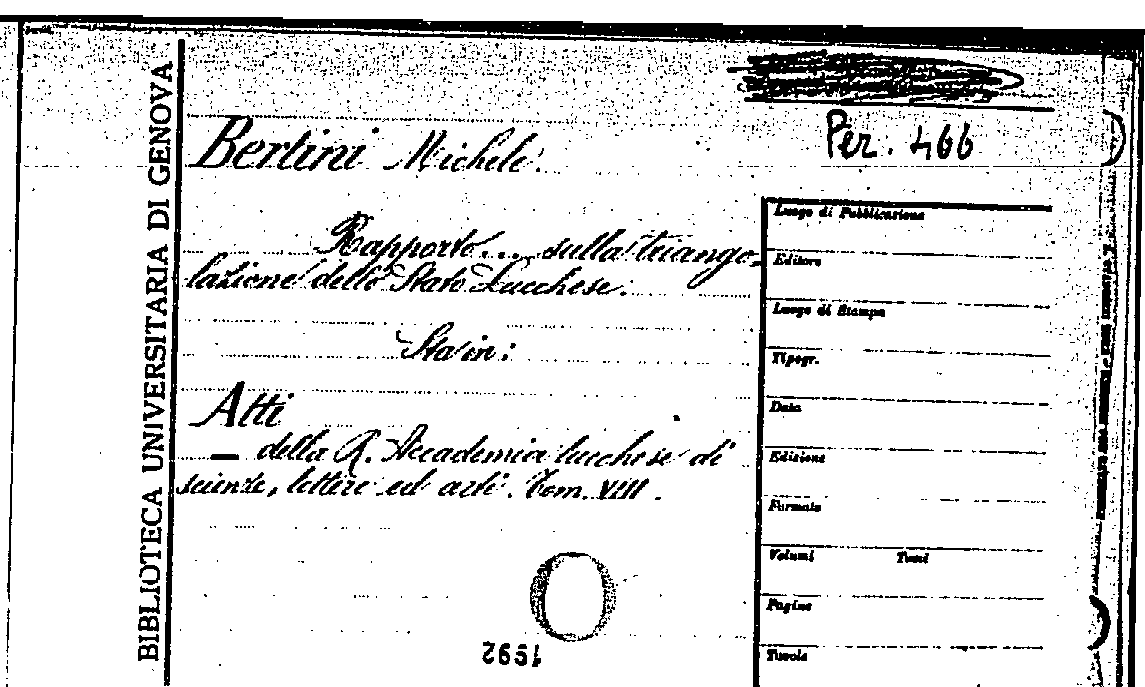 BIBLIOTECA UNIVERSITARIA DI GENOVA
Per. 466
Bertini Michele.
Rapporto.... sulla triango-
lazione dello Stato Lucchese.
Sta in:
Atti
— della R. Accademia lucchese di
scienze, lettere ed arti. Tom. VIII.
1992
Luogo di Pubblicazione
Editore
Luogo di Stampa
Tipogr.
Data
Edizione
Formato
Volumi Tomi
Pagine
Tavole